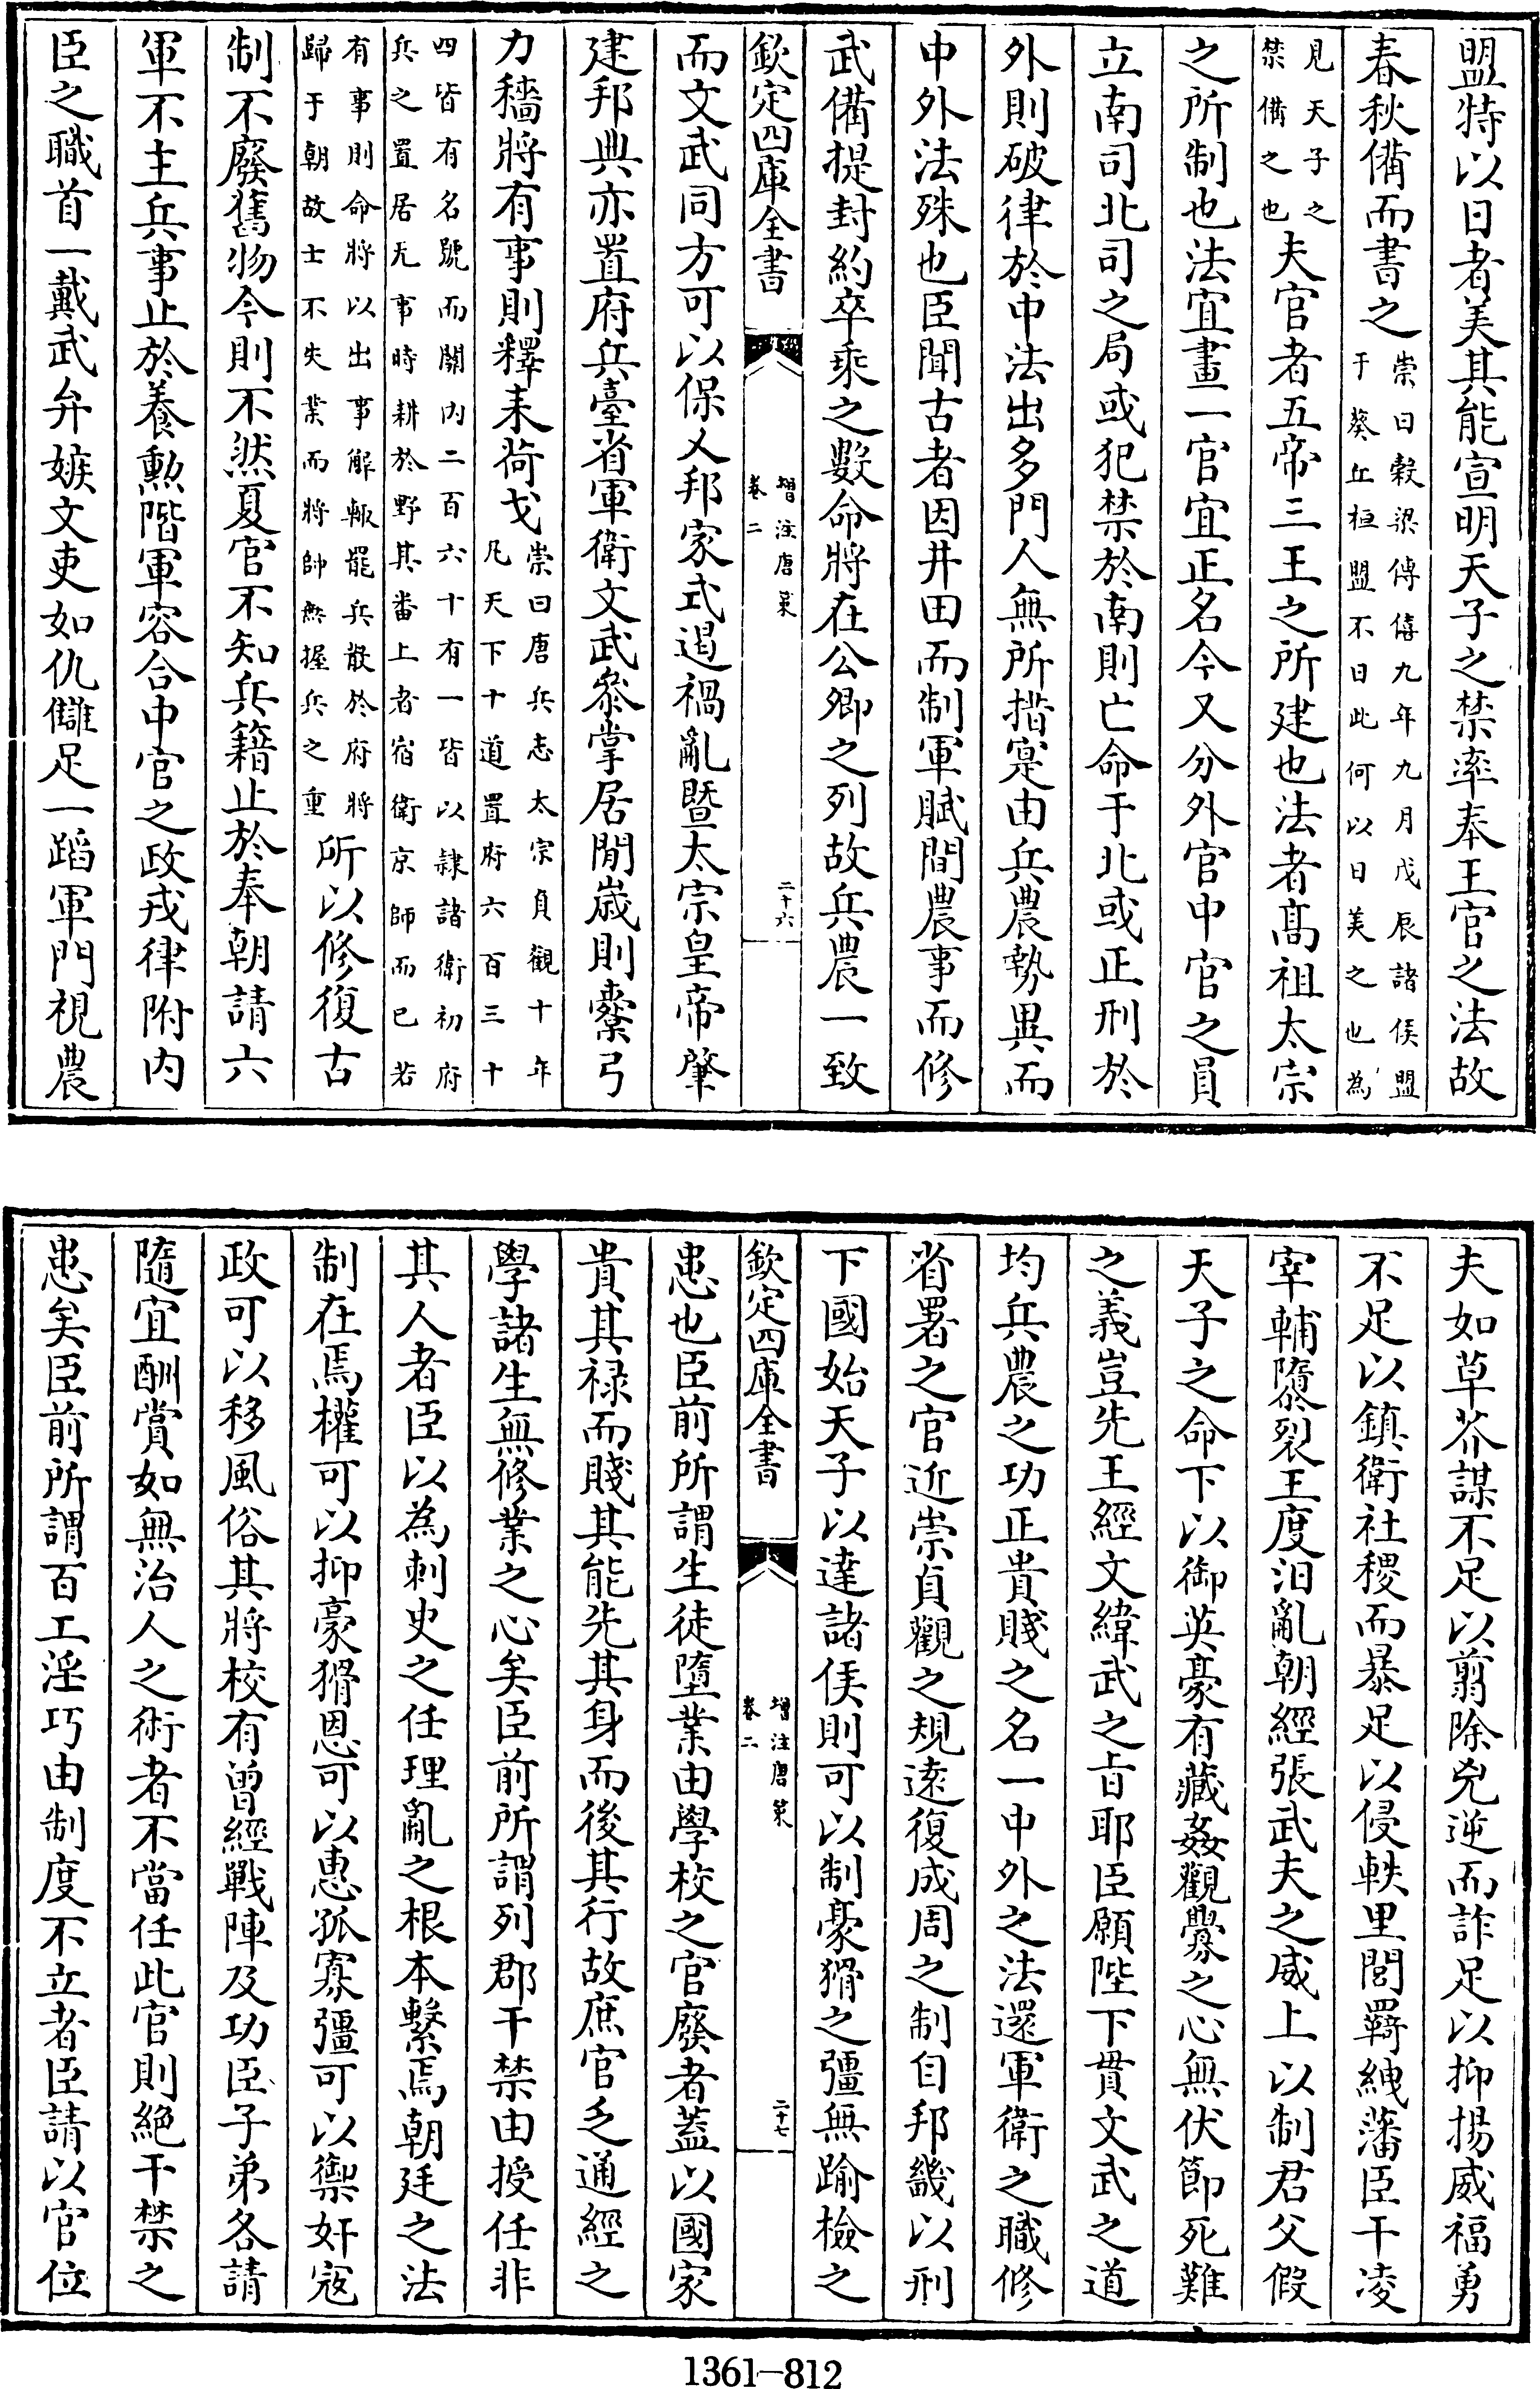 盟特以日者美其能宣明天子之禁率奉王官之法故
春秋備而書之崇曰穀梁傳僖九年九月戊辰諸侯盟于葵丘桓盟不日此何以日美之也為
見天子之禁備之也夫官者五帝三王之所建也法者髙祖太宗
之所制也法宜畫一官宜正名今又分外官中官之員
立南司北司之局或犯禁於南則亡命于北或正刑於
外則破律於中法出多門人無所措寔由兵農勢異而
中外法殊也臣聞古者因井田而制軍賦間農事而修
武備提封約卒乘之數命將在公卿之列故兵農一致
欽定四庫全書
增注唐策
卷二
二十六
而文武同方可以保乂邦家式遏禍亂暨太宗皇帝肇
建邦典亦置府兵臺省軍衛文武叅掌居閒歲則櫜弓
力穡將有事則釋耒荷戈崇曰唐兵志太宗貞觀十年凡天下十道置府六百三十
四皆有名號而關内二百六十有一皆以隸諸衛初府兵之置居无事時耕於野其畨上者宿衛京師而已若
有事則命將以出事解輙罷兵散於府將歸于朝故士不失業而將帥無握兵之重所以修復古
制不廢舊物今則不然夏官不知兵籍止於奉朝請六
軍不主兵事止於養勲階軍容合中官之政戎律附内
臣之職首一戴武弁嫉文吏如仇讎足一蹈軍門視農
夫如草芥謀不足以翦除兇逆而詐足以抑揚威福勇
不足以鎮衛社稷而暴足以侵軼里閭羇絏藩臣干凌
宰輔隳裂王度汨亂朝經張武夫之威上以制君父假
天子之命下以御英豪有藏姦觀釁之心無伏節死難
之義豈先王經文緯武之㫖耶臣願陛下貫文武之道
均兵農之功正貴賤之名一中外之法還軍衛之職修
省署之官近崇貞觀之規逺復成周之制自邦畿以刑
下國始天子以達諸侯則可以制豪猾之彊無踰檢之
欽定四庫全書
增注唐策
卷二
二十七
患也臣前所謂生徒墮業由學校之官廢者蓋以國家
貴其禄而賤其能先其身而後其行故庶官乏通經之
學諸生無修業之心矣臣前所謂列郡干禁由授任非
其人者臣以為刺史之任理亂之根本繫焉朝廷之法
制在焉權可以抑豪猾恩可以惠孤寡彊可以禦奸寇
政可以移風俗其將校有曾經戰陣及功臣子弟各請
隨宜酬賞如無治人之術者不當任此官則絶干禁之
患矣臣前所謂百工淫巧由制度不立者臣請以官位
1361—812